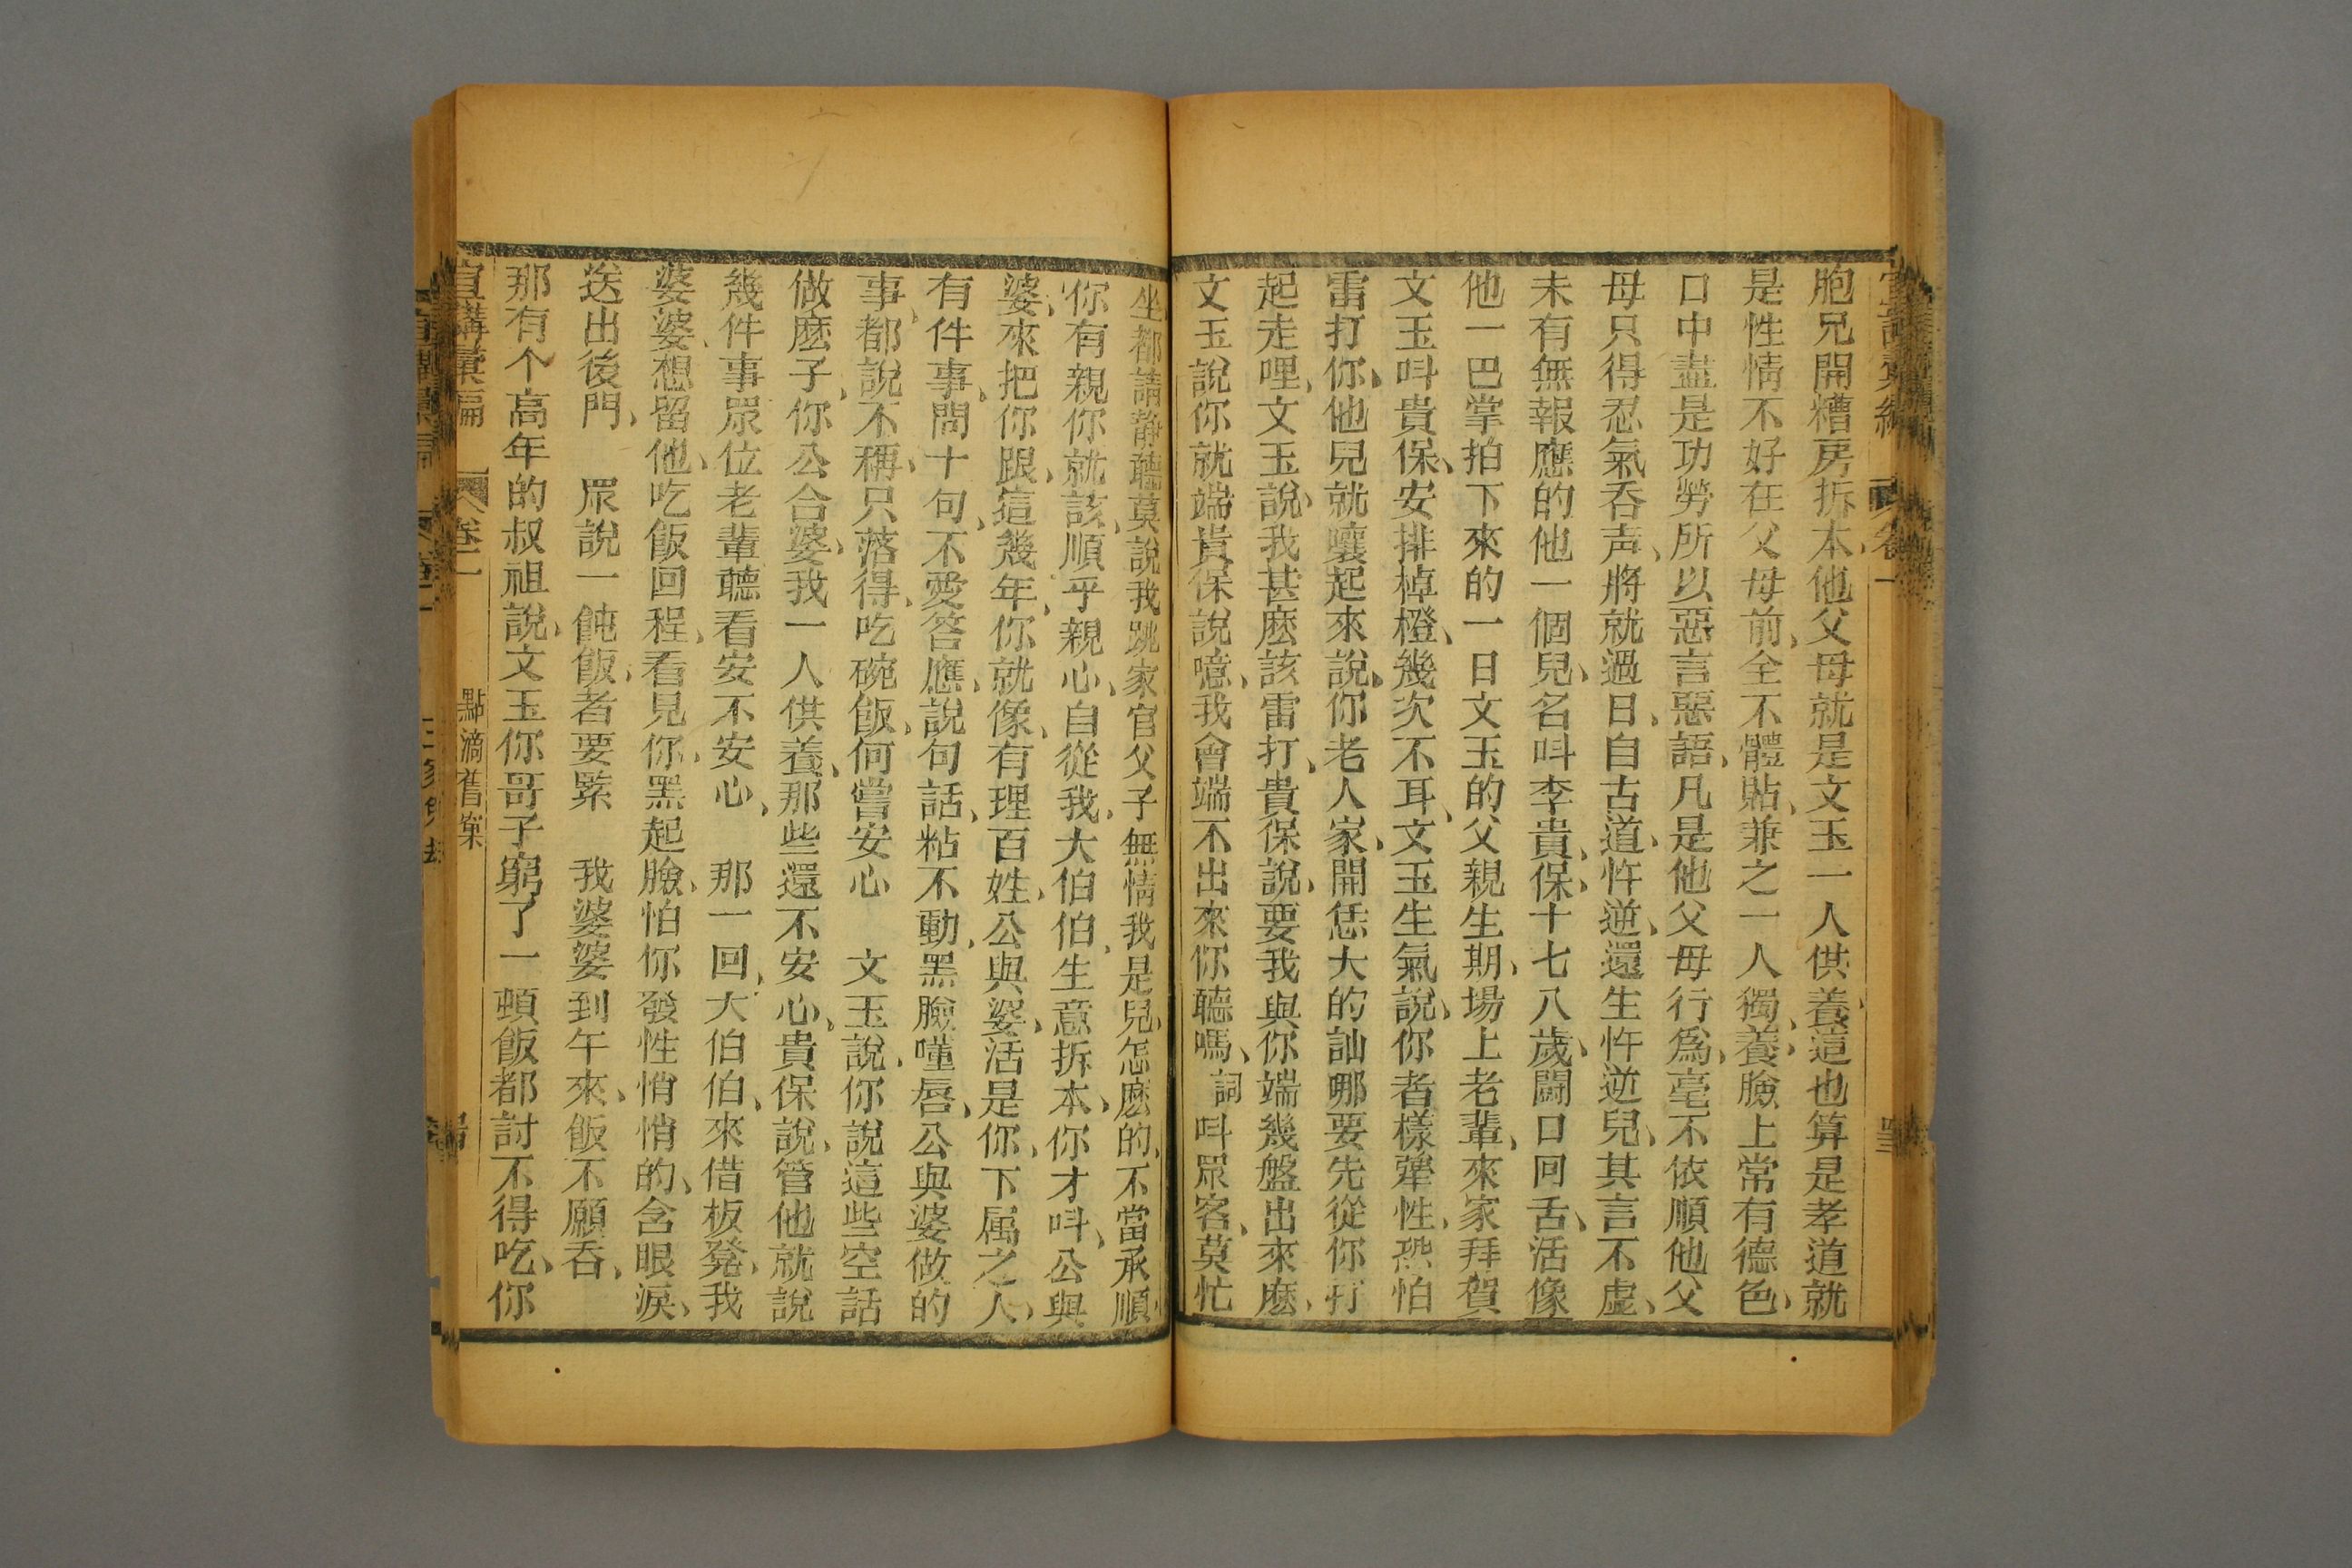 胞兄開糟房拆本、他父母就是文玉一人供養、這也算是孝道就
是性情不好、在父母前、全不體貼、兼之一人獨養、臉上常有德色、
口中盡是功勞、所以惡言惡語、凡是他父母行爲、毫不依順、他父
母只得忍氣吞声、將就過日、自古道、忤逆還生忤逆兒、其言不虛、
未有無報應的、他一個兒名呌李貴保、十七八歲、鬪口回舌、活像
他一巴掌拍下來的、一日文玉的父親生期、塲上老輩、來家拜賀
文玉呌貴保、安排棹橙、幾次不耳、文玉生氣說、你者樣犟性、恐怕
雷打你、他兒就嚷起來說、你老人家、開恁大的訕哪、要先從你打
起走哩、文玉說、我甚麽該雷打、貴保說、要我與你端幾盤出來麽、
文玉說你就端、貴保說、噫、我會端不出來、你聽嗎、詞 呌眾客、莫忙
坐都請静聽莫說我跳家官父子無情我是兒怎麽的、不當承順、
你有親你就該、順乎親心、自從我、大伯伯、生意拆本、你才呌、公與
婆、來把你跟、這幾年、你就像、有理百姓、公與婆、活是你、下属之人、
有件事、問十句、不愛答應、說句話、粘不動、黑臉嘡唇、公與婆做的
事、都說不稱、只落得、吃碗飯、何嘗安心 文玉說、你說這些空話
做麽子、你公合婆、我一人供養、那些還不安心、貴保說、管他就說
幾件事、眾位老輩聽看安不安心、 那一回、大伯伯、來借板凳、我
婆婆、想留他、吃飯回程、看見你、黑起臉、怕你發性、悄悄的、含眼淚、
送出後門、 眾說一飩飯、者要緊 我婆婆到午來、飯不願吞、
那有个高年的叔祖說、文玉你哥子窮了、一頓飯都討不得吃、你
宣講彙編 卷二 點滴舊案